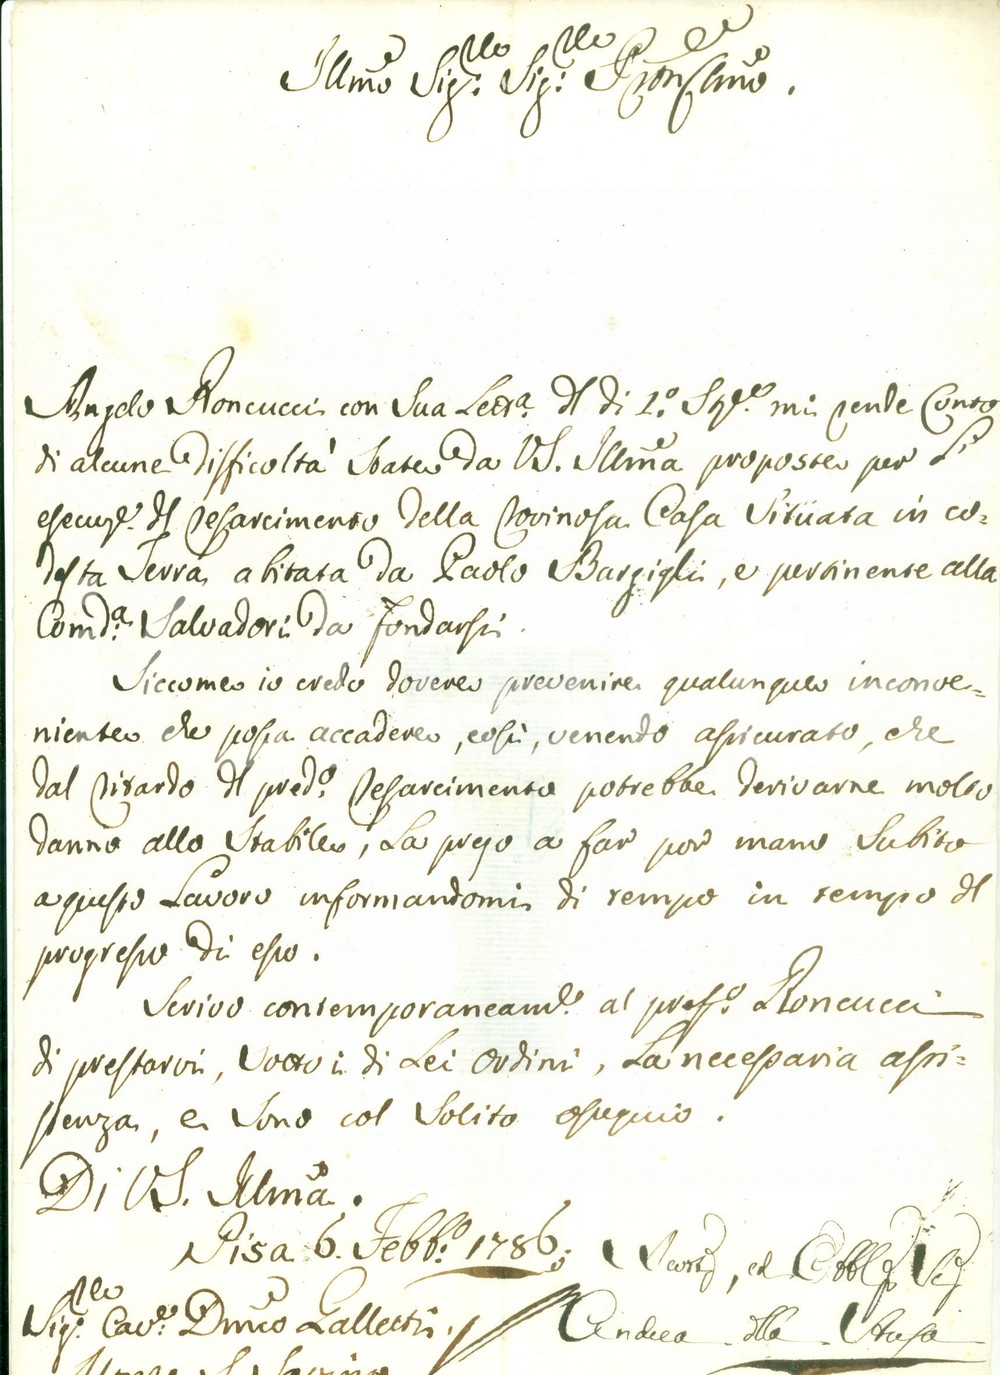 Illmo Sig.re Sig.re Pron Clmo.
Angelo Roncucci con Sua Lettra. del di 1.o mi rende Conto
di alcune difficoltà State da VS. Illma proposte per l'
esecuz.e del resarcimento della rovinosa Casa Situata in co-
desta Terra abitata da Paolo Bargigli, e pertinente alla
Comda. Salvadori da fondarsi.
Siccome io credo dovere prevenire qualunque inconve-
niente che possa accadere, così, venendo assicurato, che
dal ritardo del pred.o resarcimento potrebbe derivarne molto
danno allo Stabile, La prego a far por mano Subito
a questo Lavoro informandomi di tempo in tempo del
progresso di esso.
Scrivo contemporaneamte. al pref.o Roncucci
di prestarvi, Sotto i di Lei Ordini, La necessaria assi-
stenza, e Sono col Solito ossequio.
Di VS. Illma.
Pisa 6. Febb.o 1786.
ed Obbl
Sig.re Cav.e Dmco Galletti.
Andrea della Stufa
Monte S. Savino